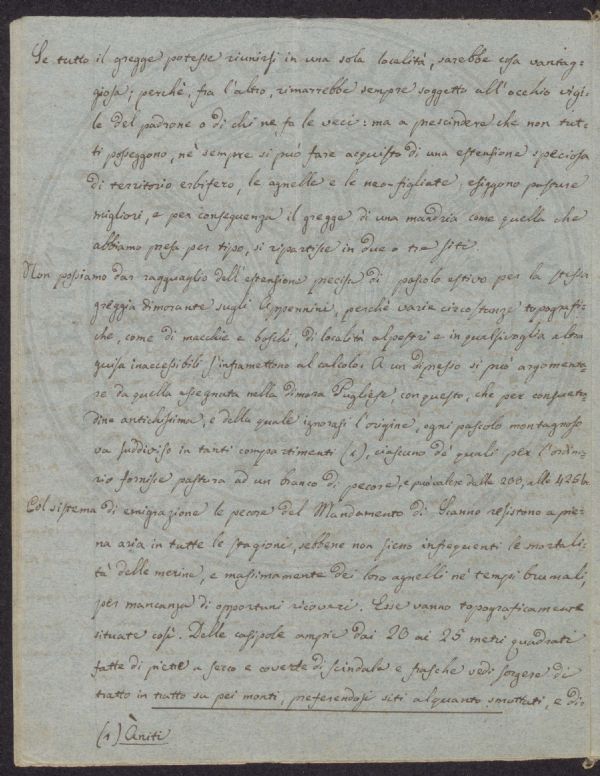 Se tutto il gregge potesse riunirsi in una sola località, sarebbe cosa vantag-
giosa; perchè, fra l'altro, rimarrebbe sempre soggetto all'occhio vigi-
le del padrone o di chi ne fa le veci: ma a prescindere che non tut-
ti posseggono, nè sempre si può fare acquisto di una estensione speciosa
di territorio erbifero, le agnelle e le neo-figliate esiggono pasture
migliori, e per conseguenza il gregge di una mandria come quella che
abbiamo presa per tipo, si ripartisce in due o tre siti.
Non possiamo dar ragguaglio dell'estensione precisa di pascolo estivo per la stessa
greggia dimorante sugli Appennini, perchè varie circostanze topografi-
che, come di macchie e boschi, di località alpestri e in qualsivoglia altra
guisa inaccessibili s'inframettono al calcolo. A un dipresso si può argomenta-
re da quella assegnata nella dimora Pugliese con questo, che per consuetu-
dine antichissima, e della quale ignorasi l'origine, ogni pascolo montagnoso
va suddiviso in tanti compartimenti (1), ciascuno de' quali per l'ordina-
rio fornisce pastura ad un branco di pecore, e può valere dalle 200, alle 425
Col sistema di emigrazione le pecore del Mandamento di Scanno resistono a pie-
na aria in tutte le stagioni, sebbene non sieno infrequenti le mortali-
tà delle merine, e massimamente dei loro agnelli ne' tempi brumali,
per mancanza di opportuni ricoveri. Esse vanno topograficamente
situate così. Delle casipole ampie dai 20 ai 25 metri quadrati
fatte di pietre a secco e coverte di scindala e frasche vedi sorgere di
tratto in tratto su pei monti, preferendosi siti alquanto smottati, e di-
(1) Àniti